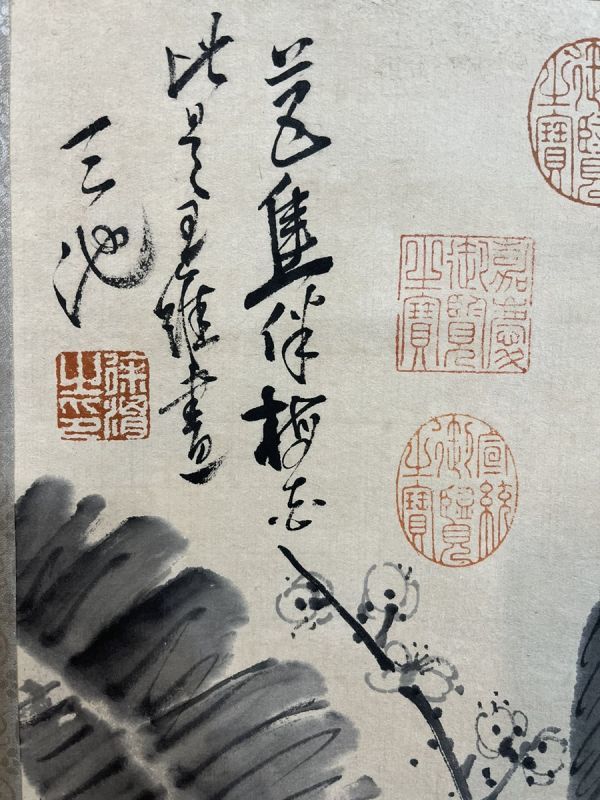 御覽之寶
嘉慶御覽之寶
宣統御覽之寶
芭蕉伴梅花
此是王維畫
天池
徐渭之印